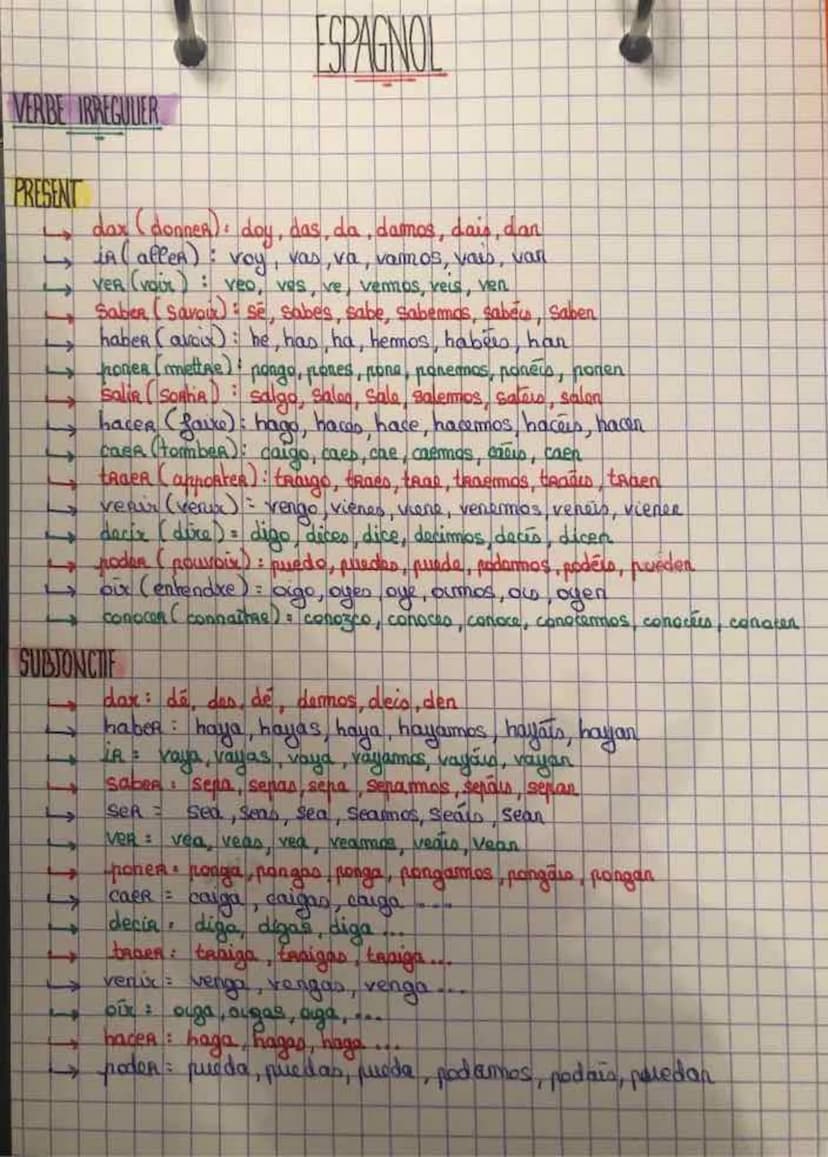 ESPAGNOL
VERBE IRREGULIER
PRESENT
→ dar (donner): doy, das, da, damos, dais, dan
→ ir (aller) : voy, vas, va, vamos, vais, van
→ ver (voir) : veo, ves, ve, vemos, veis, ven
→ saber (savoir) : sé, sabes, sabe, sabemos, sabéis, saben
→ haber (avoir) : he, has, ha, hemos, habéis, han
→ poner (mettre) : pongo, pones, pone, ponemos, ponéis, ponen
→ salir (sortir) : salgo, sales, sale, salemos, saléis, salen
→ hacer (faire) : hago, haces, hace, hacemos, hacéis, hacen
→ caer (tomber) : caigo, caes, cae, caemos, cáeis, caen
→ traer (apporter) : traigo, traes, trae, traemos, traéis, traen
→ venir (venir) = vengo, vienes, viene, venemos, veneis, vienen
→ decir (dire) = digo, dices, dice, decimos, decís, dicen
→ poder (pouvoir) : puedo, puedes, puede, podemos, podéis, pueden
→ oír (entendre) = oigo, oyes, oye, oímos, oís, oyen
→ conocer (connaître) = conozco, conoces, conoce, conocemos, conocéis, conocen
SUBJONCTIF
→ dar : dé, des, dé, demos, deis, den
→ haber : haya, hayas, haya, hayamos, hayáis, hayan
→ ir = vaya, vayas, vaya, vayamos, vayáis, vayan
→ saber : sepa, sepas, sepa, sepamos, sepáis, sepan
→ ser = sea, seas, sea, seamos, seáis, sean
→ ver = vea, veas, vea, veamos, veáis, vean
→ poner = ponga, pongas, ponga, pongamos, pongáis, pongan
→ caer = caiga, caigas, caiga ....
→ decir = diga, digas, diga ...
→ traer : traiga, traigas, traiga ...
→ venir = venga, vengas, venga ...
→ oír : oiga, oigas, oiga, ...
→ hacer : haga, hagas, haga ...
→ poder = pueda, puedas, pueda, podamos, podais, puedan